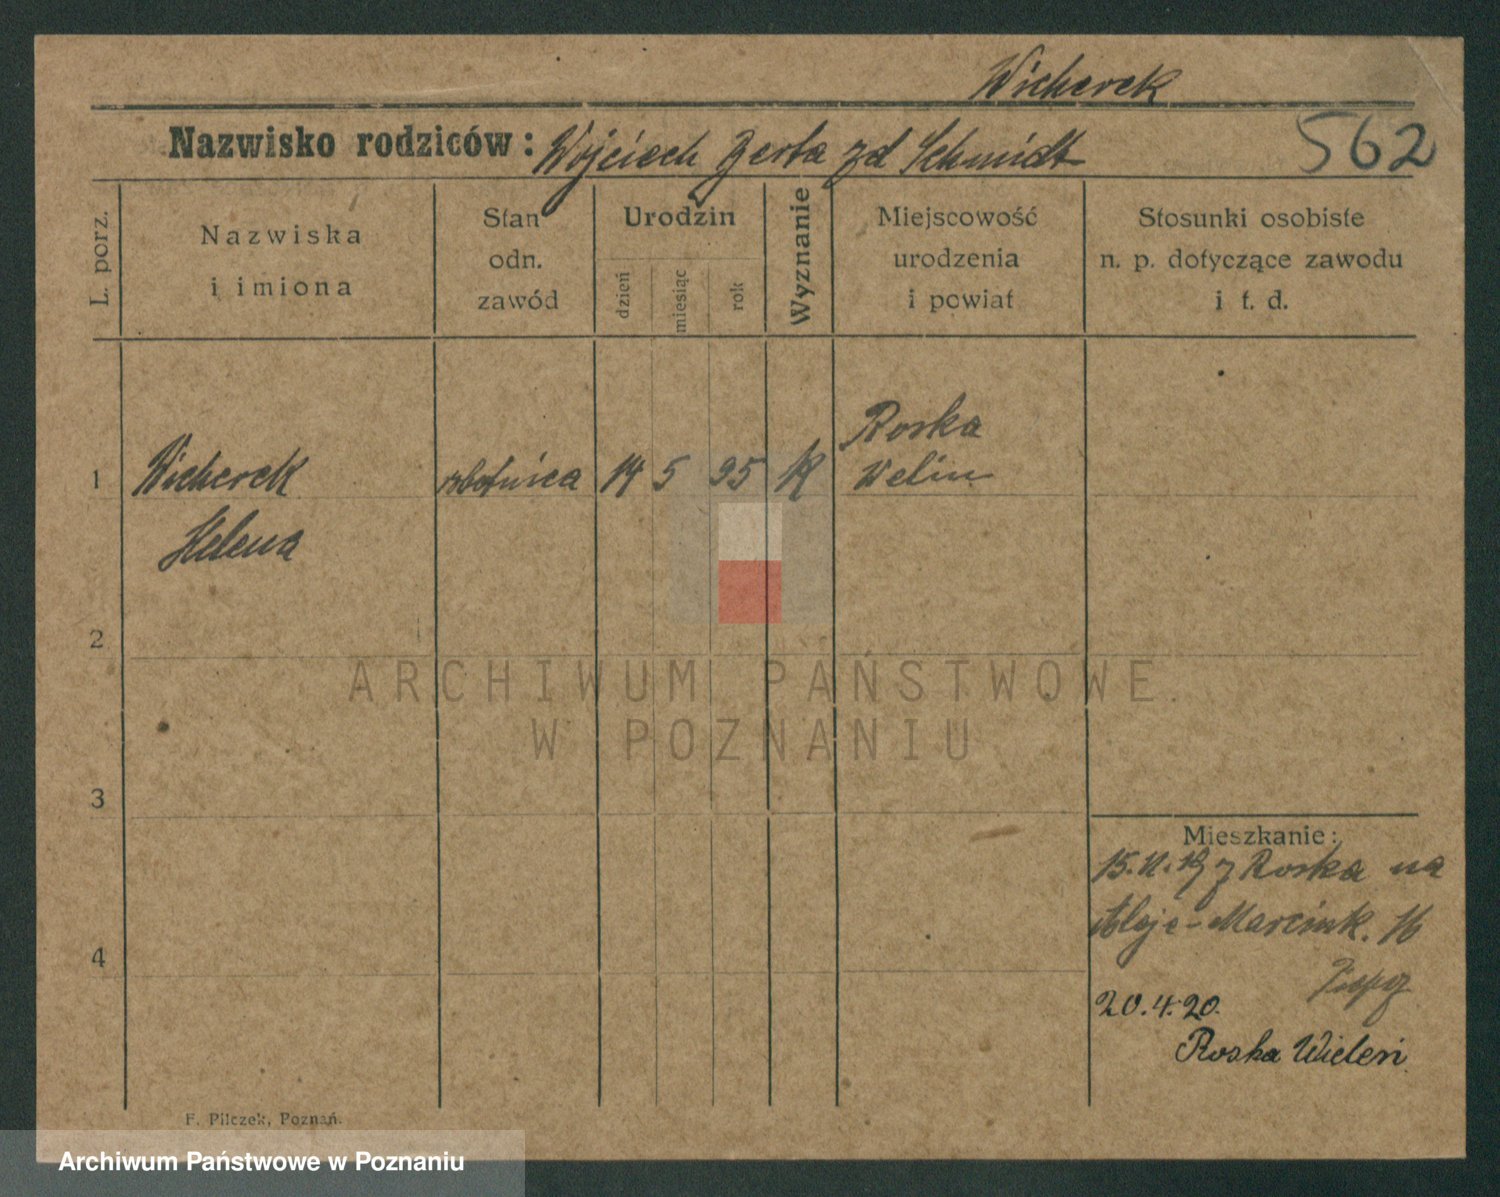 Wicherek
Nazwisko rodziców: Wojciech Berta zd Schmidt
562
L. porz.
Nazwiska
i imiona
Stan
odn.
zawód
Urodzin
dzień
miesiąc
rok
Wyznanie
Miejscowość
urodzenia
i powiat
Stosunki osobiste
n. p. dotyczące zawodu
i t. d.
1
Wicherek
Helena
robotnica
14
5
95
K
Roska
Welin
2
3
4
Mieszkanie:
15.11.19 z Roska na
Aleje-Marcink. 16
20.4.20.
Roska Wieleń
F. Pilczek, Poznań.
ARCHIWUM PAŃSTWOWE
W POZNANIU
Archiwum Państwowe w Poznaniu